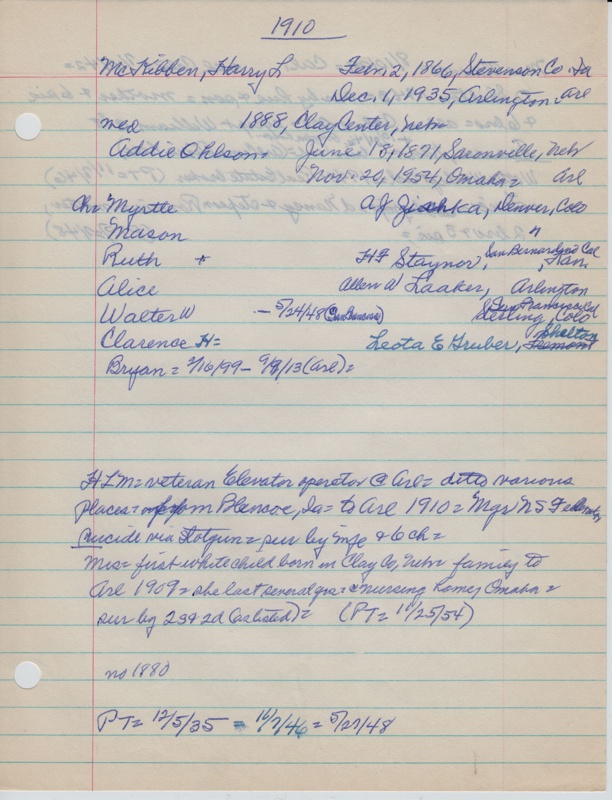 1910
McKibben, Harry L   Feb. 2, 1866, Stevenson Co. Ia
Dec. 1, 1935, Arlington. Arl
med   1888, Clay Center, Nebr
Addie Ohlson.   June 18, 1871, Saronville, Nebr
Nov. 20, 1954, Omaha = Arl
Ch = Myrtle   A J Zichka, Denver, Colo
Mason   "
Ruth +   H F Staynor, San Bernardino Cal
Alice   Allen W Laaker, Arlington
Walter W   - 5/24/48 (San Francisco)   San Francisco Cal
Sterling, Colo
Clarence H =   Leota E Gruber, Fremont Shelton
Bryan = 2/16/99 - 9/8/13 (Arl) =
H L M = veteran Elevator operator @ Arl = ditto various
places = from Blencoe, Ia = to Arl 1910 = Mgr N S
suicide via shotgun = sur by & 6 ch =
Mrs = first white child born in Clay Co, Nebr = family to
Arl 1909 = she last several yrs = nursing home, Omaha =
sur by 2 s & 2 d (as listed) = (PT = 11/25/54)
no 1880
PT = 12/5/35 = 10/7/46 = 5/27/48